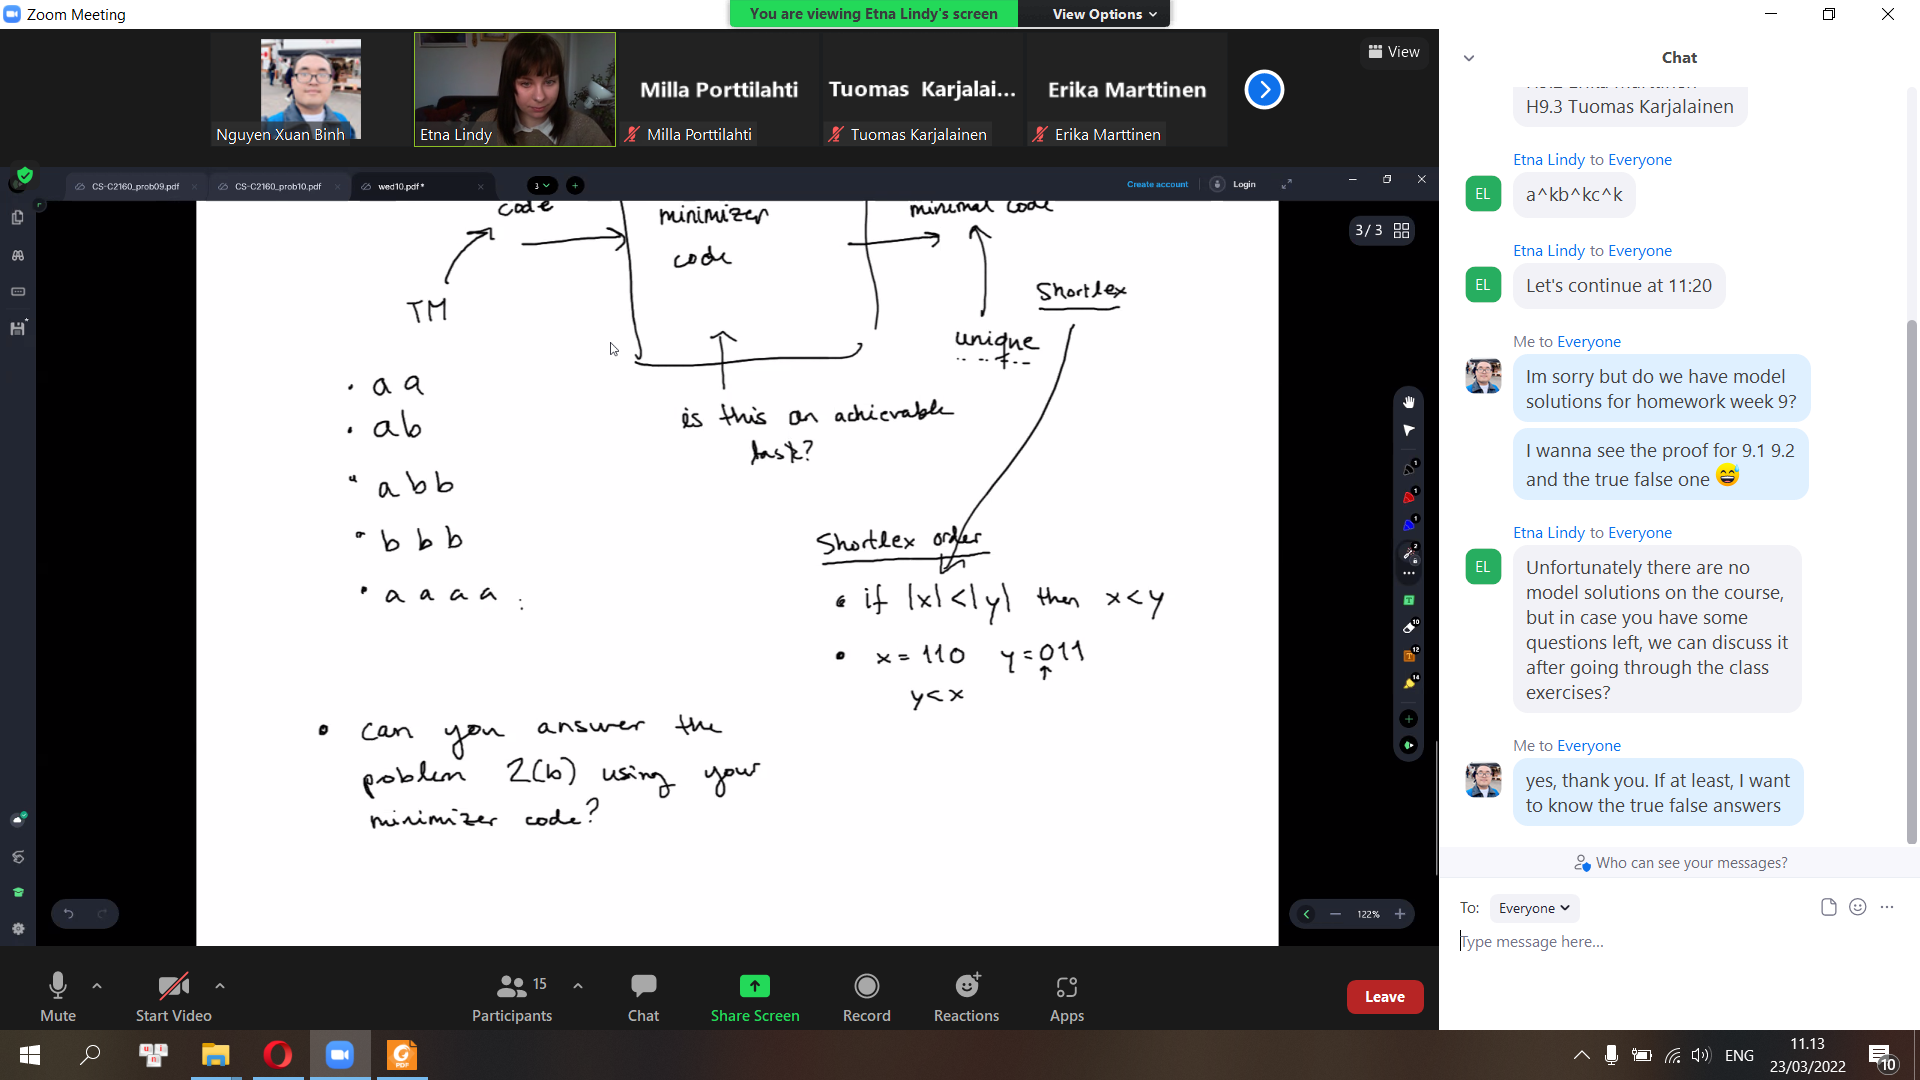 Zoom Meeting
You are viewing Etna Lindy's screen
View Options
Nguyen Xuan Binh
Etna Lindy
Milla Porttilahti
Milla Porttilahti
Tuomas Karjalai...
Tuomas Karjalainen
Erika Marttinen
Erika Marttinen
View
CS-C2160_prob09.pdf
CS-C2160_prob10.pdf
wed10.pdf *
3
Create account
Login
3 / 3
code
minimizer
code
minimal code
TM
unique
Shortlex
is this an achievable
task?
• a a
• ab
• a b b
• b b b
• a a a a :
Shortlex order
• if |x|<|y| then x<y
• x = 110 y = 011
y < x
• can you answer the
problem 2(b) using your
minimizer code?
122%
Mute
Start Video
Participants
15
Chat
Share Screen
Record
Reactions
Apps
Leave
Chat
H9.3 Tuomas Karjalainen
Etna Lindy to Everyone
EL
a^kb^kc^k
Etna Lindy to Everyone
EL
Let's continue at 11:20
Me to Everyone
Im sorry but do we have model
solutions for homework week 9?
I wanna see the proof for 9.1 9.2
and the true false one 😅
Etna Lindy to Everyone
EL
Unfortunately there are no
model solutions on the course,
but in case you have some
questions left, we can discuss it
after going through the class
exercises?
Me to Everyone
yes, thank you. If at least, I want
to know the true false answers
Who can see your messages?
To: Everyone
Type message here...
ENG
11.13
23/03/2022
10